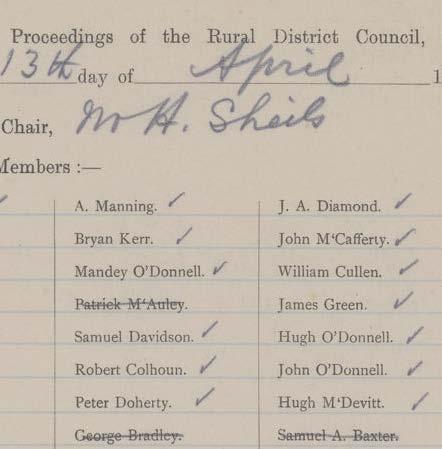 Proceedings of the Rural District Council,
13th day of April 1
Chair, Wm H. Sheils
Members :—
A. Manning. ✓
Bryan Kerr. ✓
Mandey O'Donnell. ✓
Patrick M'Auley.
Samuel Davidson. ✓
Robert Colhoun. ✓
Peter Doherty. ✓
George Bradley.
J. A. Diamond. ✓
John M'Cafferty. ✓
William Cullen. ✓
James Green. ✓
Hugh O'Donnell. ✓
John O'Donnell. ✓
Hugh M'Devitt. ✓
Samuel A. Baxter.